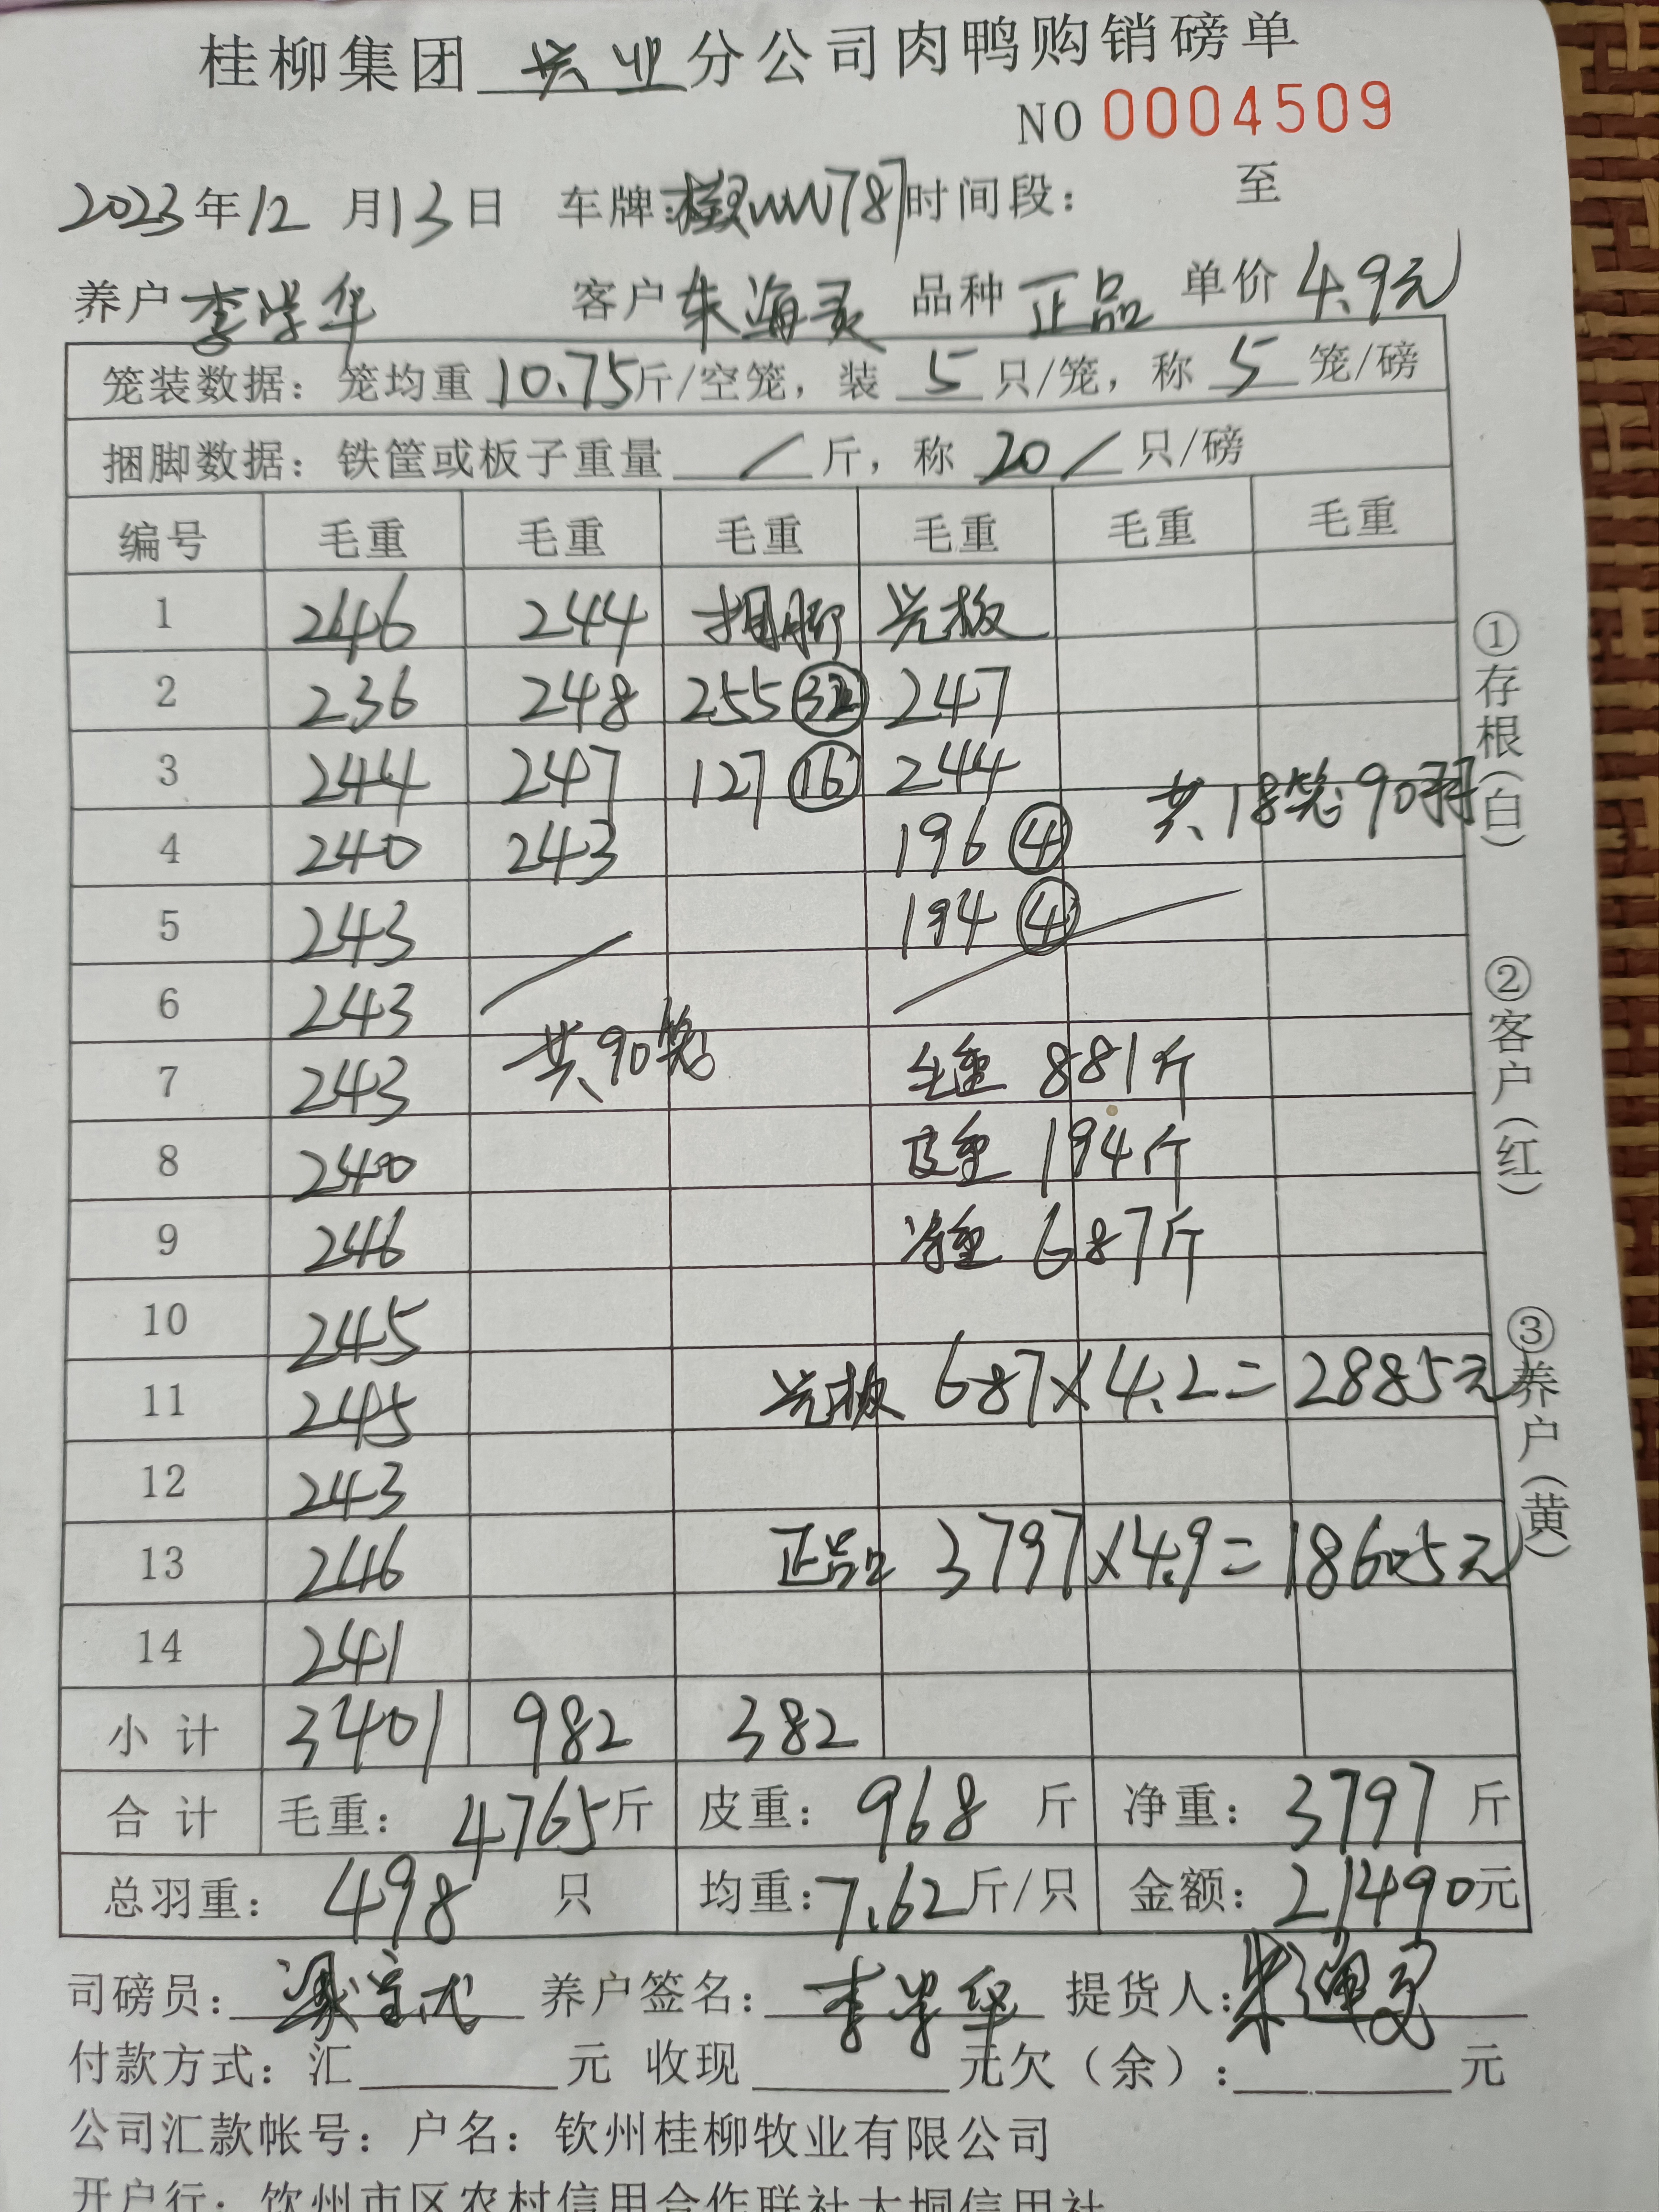 桂柳集团 兴业 分公司肉鸭购销磅单
NO 0004509
2023年12月13日 车牌: 时间段: 至
养户 李学华 客户 朱海灵 品种 正品 单价 4.9元
笼装数据: 笼均重 10.75斤/空笼, 装 5 只/笼, 称 5 笼/磅
捆脚数据: 铁筐或板子重量 / 斤, 称 20 / 只/磅
编号 毛重 毛重 毛重 毛重 毛重 毛重
1 246 244 捆脚 光板
2 236 248 255 ㉜ 247
3 244 247 127 ⑯ 244
共18笼90羽
4 240 243 196 ④
5 243 194 ④
6 243
共90笼
7 243 毛重 881斤
8 240 皮重 194斤
9 246 净重 687斤
10 245
11 245 光板 687×4.2=2885元
12 243
13 246 正品 3797×4.9=18605元
14 241
小计 3401 982 382
合计 毛重: 4765斤 皮重: 968 斤 净重: 3797 斤
总羽重: 498 只 均重: 7.62斤/只 金额: 21490元
司磅员: 养户签名: 李学华 提货人: 朱海灵
付款方式: 汇 元 收现 元欠(余): 元
公司汇款帐号: 户名: 钦州桂柳牧业有限公司
开户行: 钦州市区农村信用合作联社大垌信用社
①存根(白)
②客户(红)
③养户(黄)